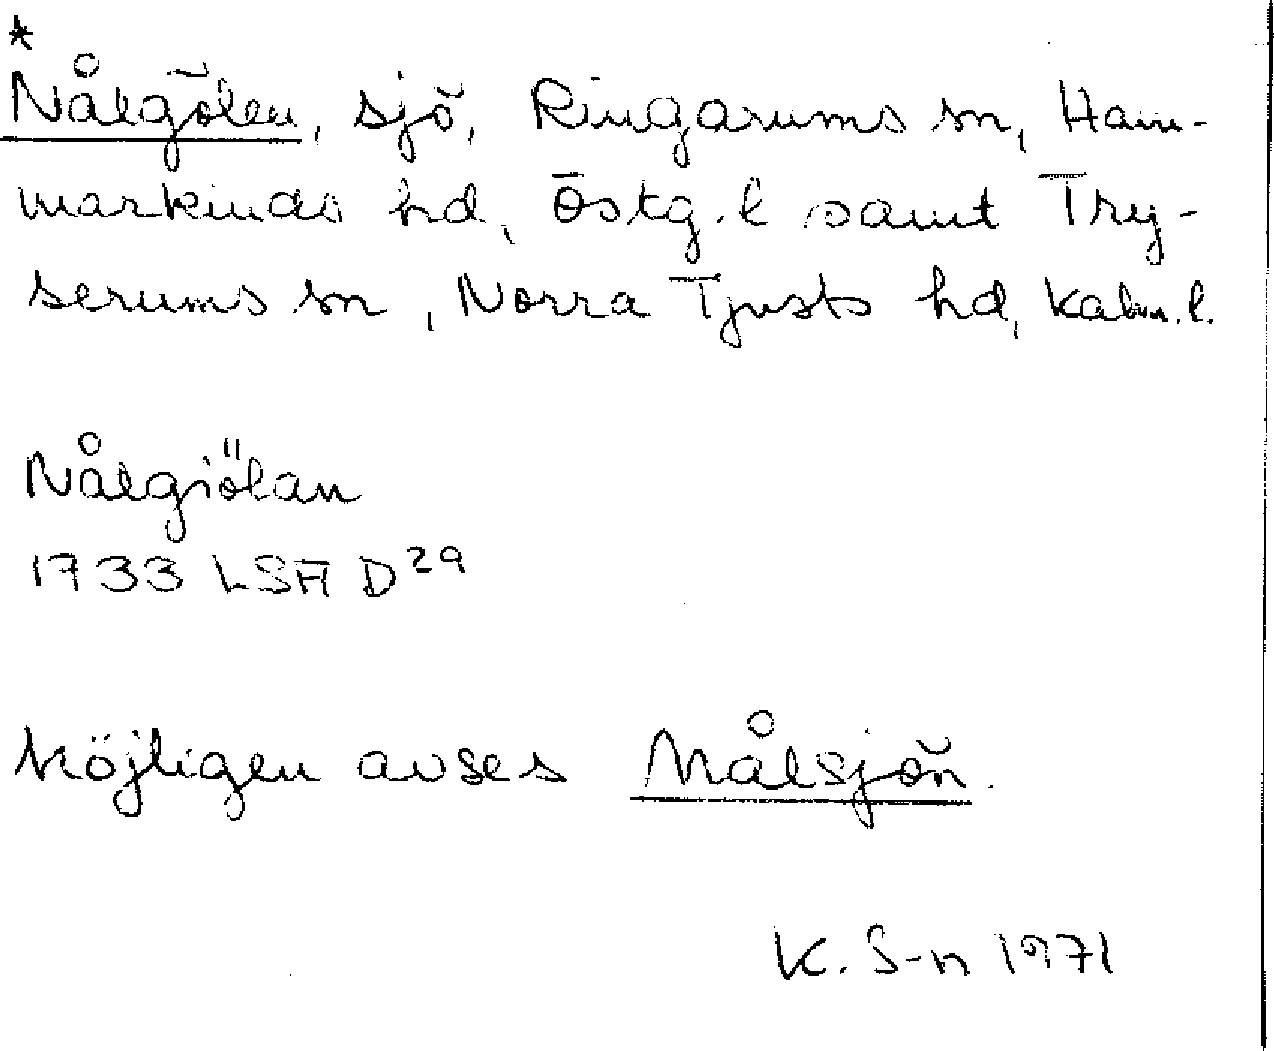 *
Nålgölen, sjö, Ringarums sn, Ham-
markinds hd, Östg. l samt Try-
serums sn, Norra Tjusts hd, Kalm. l.
Nålgiölan
1733 LSA D29
Möjligen avses Målsjön.
K. S-n 1971